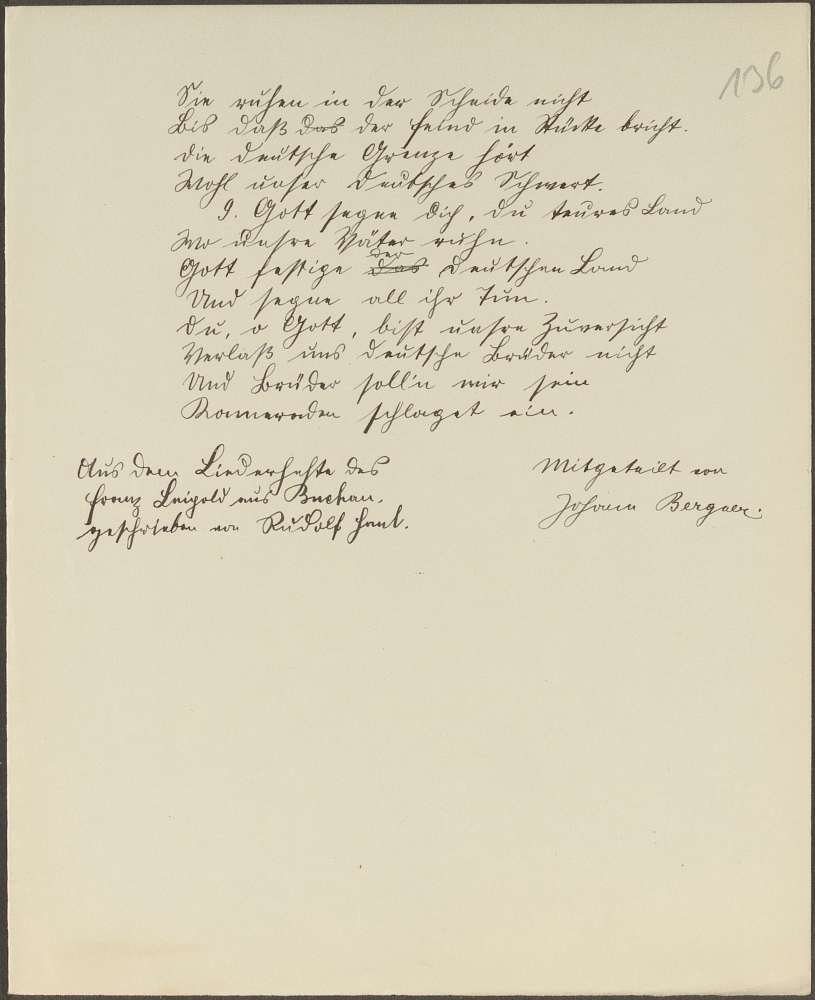 136
Sie ruhen in der Scheide nicht
Bis daß das der Feind in Stücke bricht.
Die deutsche Grenze hört
Wohl unser deutsches Schwert.
9. Gott segne dich, du teures Land
Wo unsre Väter ruhn.
Gott festige das der deutschen Land
Und segne all ihr Tun.
Du, o Gott, bist unsre Zuversicht
Verlaß uns deutsche Brüder nicht
Und Brüder soll'n wir sein
Kameraden schlaget ein.
Aus dem Liederhefte des
Franz Leipold aus Buchau,
geschrieben von Rudolf
Mitgeteilt von
Johann Bergner.